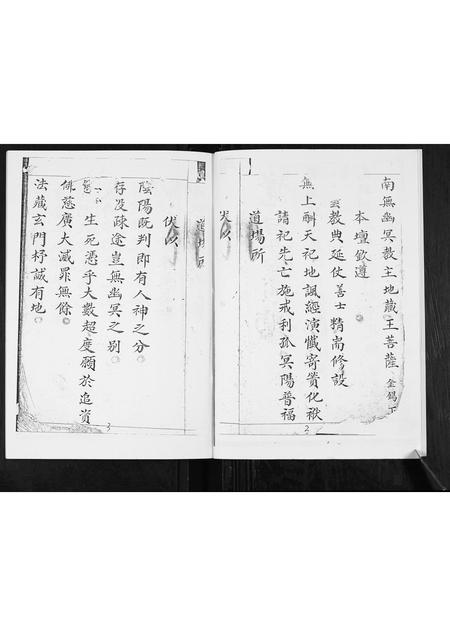 南無幽冥教主地藏王菩薩 金錫下
本壇欽遵
教典延仗善士精崙修設
無上酬天祀地諷經演懺寄黌化袱
請祀先亡施戒利孤冥陽普福
道場所
伏以
2
道場所
伏以
陰陽既判即有人神之分
存及疎途豈無幽冥之别
生死憑乎大數超度願於追資
慈廣大滅罪無餘
法藏玄門抒誠有地
3